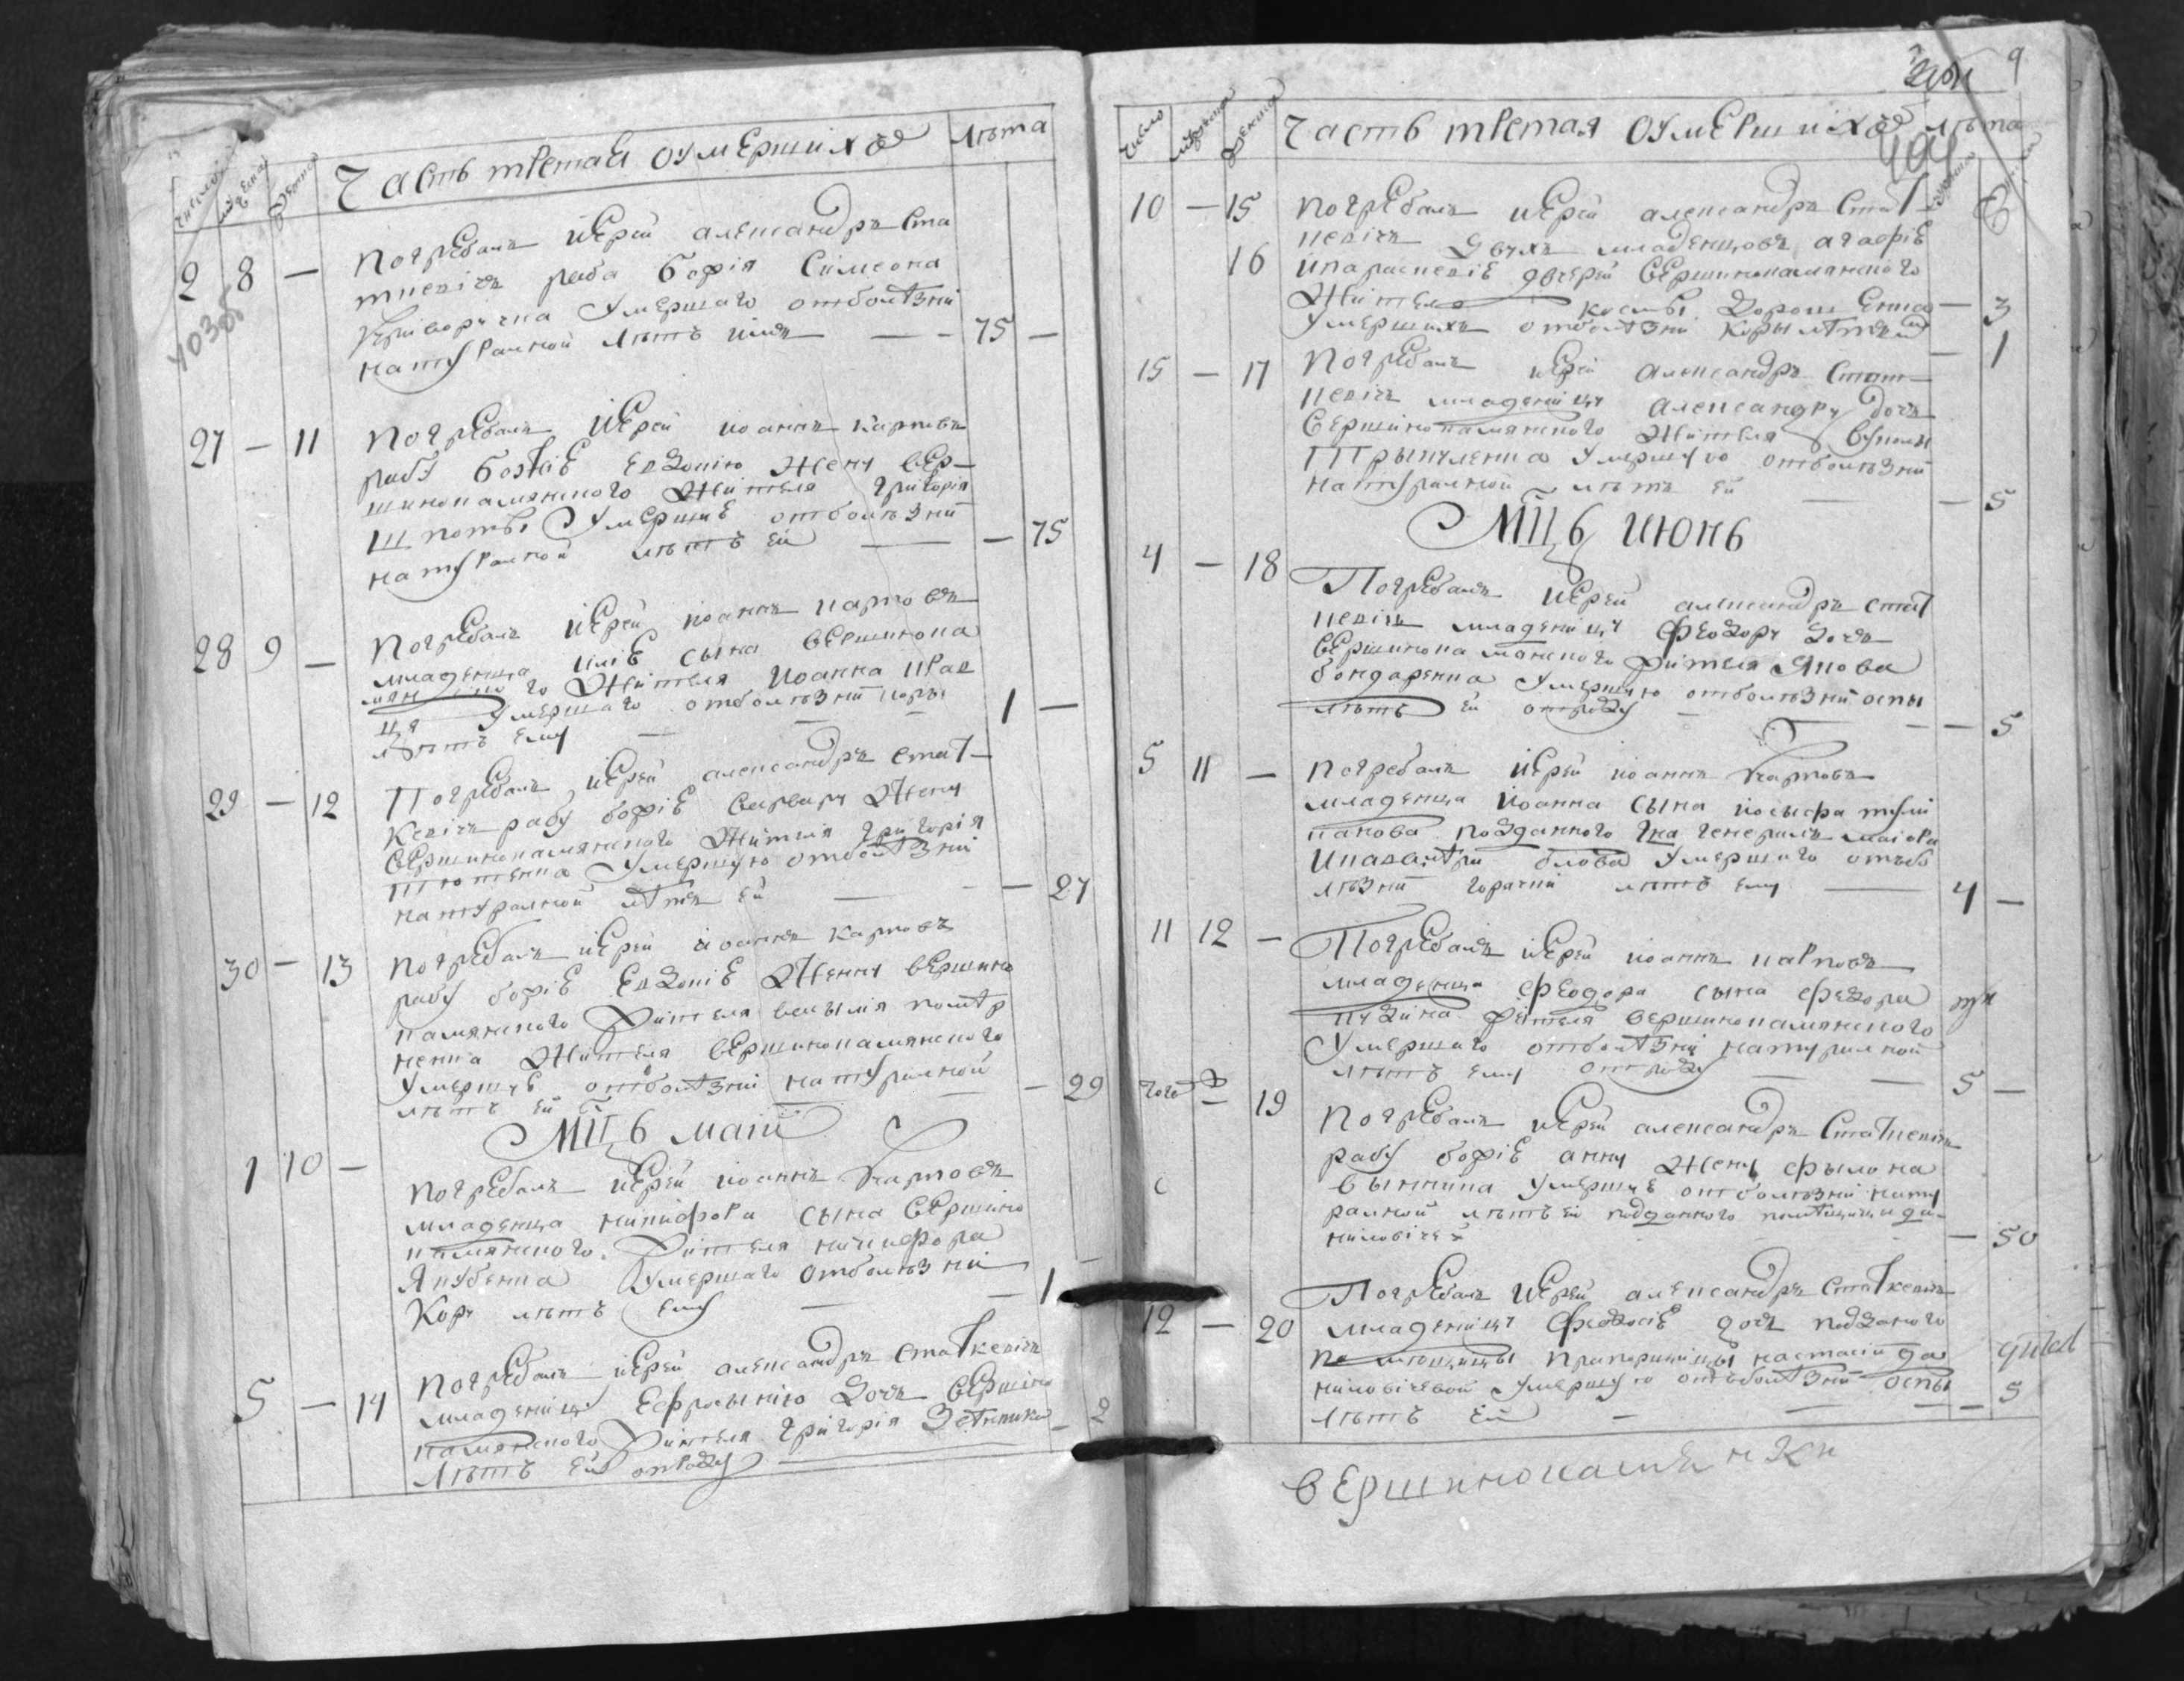 Часть третая оумершихъ лѣта
2 8 — погребалъ иерей александръ Ста
ткевичъ раба божія Симеона
Криворучка Умершаго отболѣзни
натуралной лѣтъ имѣ — 75 —
27 — 11 погребалъ иерей иоаннъ карповъ
рабу божіе Евдокию жену вер-
шинокамянского жителя григорія
Шпоты Умершие отболѣзни
натуралной лѣтъ ей — 75
28 9 — погребалъ иерей иоаннъ карповъ
младенца иліе сына вершинока
мянского жителя иоанна крав
ця Умершаго отболѣзни коры
лѣтъ ему — 1 —
29 — 12 Погребалъ иерей александръ стат-
кевичъ рабу божіе варвару жену
вершинокамянского жителя григорія
Умершую отболѣзни
натуралной лѣтъ ей — 27
30 — 13 погребалъ иерей иоаннъ карповъ
рабу божіе Евдокіе женну вершино
камянского жителя
жителя вершинокамянского
Умершуе отболѣзни натуралной
лѣтъ ей — 29
МЦЬ маій
1 10 — погребалъ иерей иоаннъ карповъ
младенца никифора сына вершино
камянского жителя никифора
Якубенка Умершаго отболѣзни
Кору лѣтъ ему — 1 —
5 — 14 погребалъ иерей александръ статкевичъ
младеницу Ефросынію дочь вершино
камянского жителя григорія
лѣтъ ей отроду — 2
9
число
Часть третая оумершихъ лѣта
10 — 15 погребалъ иерей александръ стат
16 кевичъ двухъ младенцовъ агафіе
ипараскевіе дочерей вершинокамянского
жителя космы Дорошенка — 3
Умершихъ отболѣзни коры лѣтъ — 1
15 — 17 Погребалъ иерей александръ стат
кевичъ младеницу александру дочь
вершинокамянского жителя
Умершую отболѣзни
натуралной лѣтъ ей — 5
МЦЬ июнь
4 — 18 Погребалъ иерей александръ стат
кевичъ младеницу феодору дочь
вершинокамянского жителя Якова
бондаренка Умершую отболѣзни оспы
лѣтъ ей отроду — 5
5 11 — погребалъ иерей иоаннъ карповъ
младенца иоанна сына иосыфа
подданного гна генералъ маіора
Умершаго отъбо
лѣзни горячки лѣтъ ему — 4 —
11 12 — Погребалъ иерей иоаннъ карповъ
младенца феодора сына федора
жителя вершинокамянского
Умершаго отболѣзни натуралной
лѣтъ ему отроду — 5 —
того — 19 погребалъ иерей александръ статкевичъ
рабу божіе анну жену фылона
Умершуе отболѣзни нату
ралной лѣтъ ей подданного
— 50
12 — 20 Погребалъ иерей александръ статкевичъ
младеницу феодосіе дочь подданого
помѣщицы прапорщицы настасіи да
ниловичевой Умершую отъболѣзни оспы
лѣтъ ей — 5
вершинокамянки